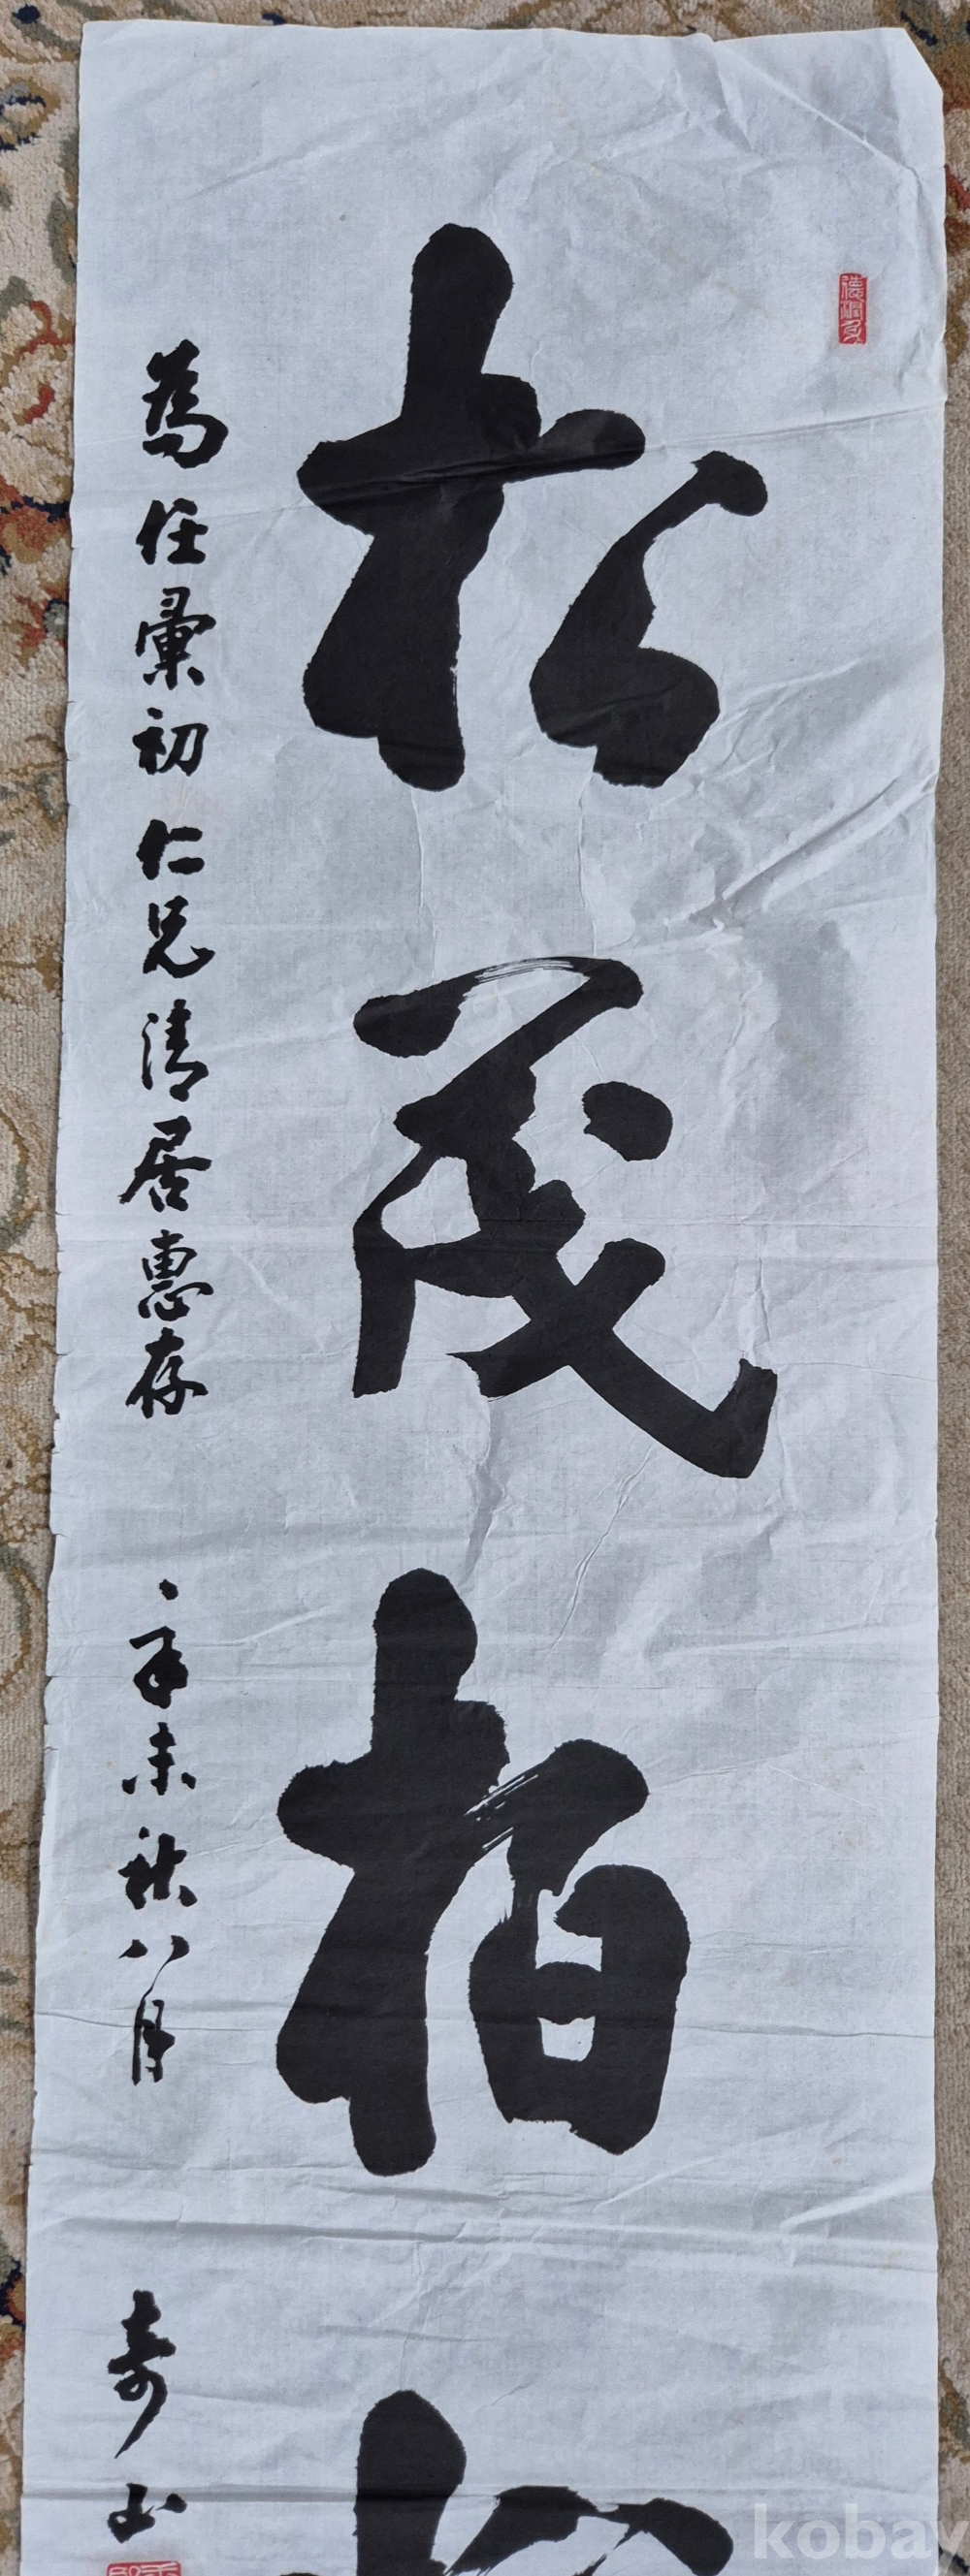 松茂柏
為任彙初仁兄清居惠存 辛未秋八月 壽山
kobay